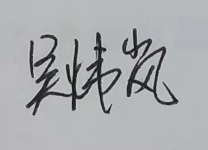 吴炜岚